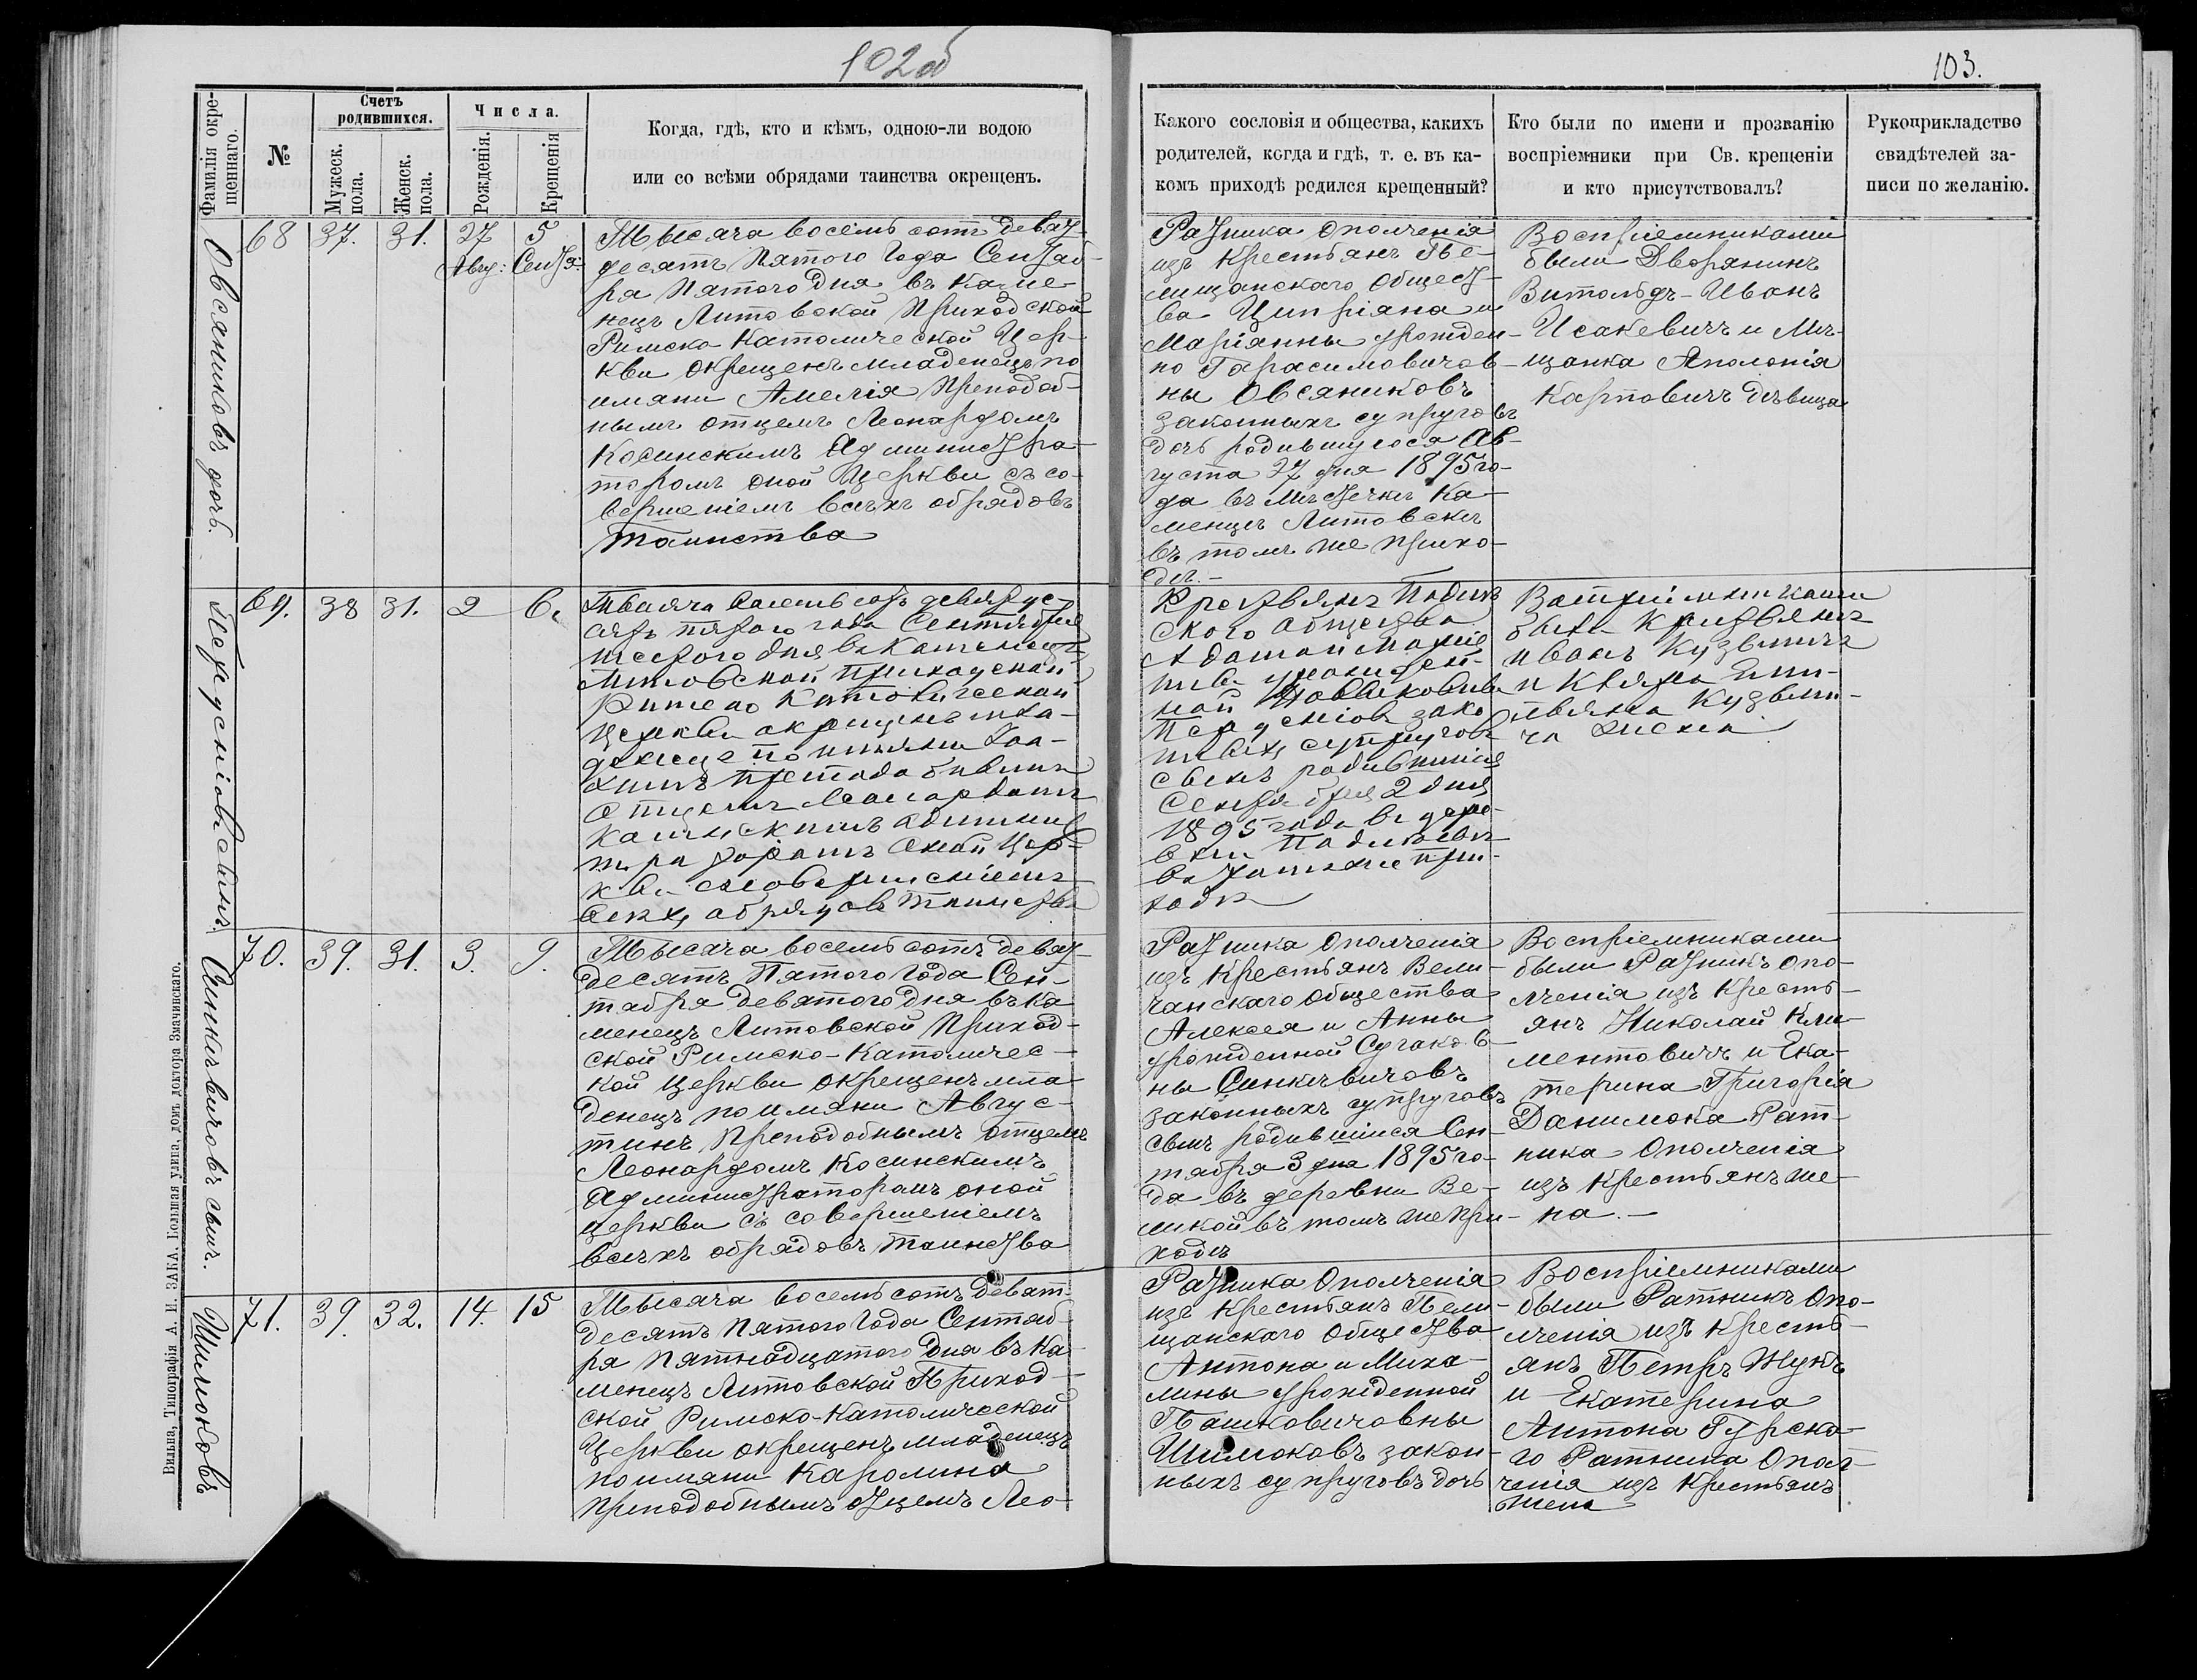 102об
103.
Фамилія окре-
щеннаго.
№
Счетъ
родившихся.
Мужеск.
пола.
Женск.
пола.
Числа.
Рожденія.
Крещенія
Когда, гдѣ, кто и кѣмъ, одною-ли водою
или со всѣми обрядами таинства окрещенъ.
Какого сословія и общества, какихъ
родителей, когда и гдѣ, т. е. въ ка-
комъ приходѣ родился крещенный?
Кто были по имени и прозванію
воспріемники при Св. крещеніи
и кто присутствовалъ?
Рукоприкладство
свидѣтелей за-
писи по желанію.
Овсяниковъ дочь.
68 37. 31. 27 5
Авгу: Сентя:
Тысяча восемь сотъ девят-
десятъ Пятого Года Сентяб-
ря Пятого Дня въ Каме-
нецъ Литовской Приходской
Римско-Католической Цер-
кви окрещенъ младенецъ по
имяни Амелія Преподоб-
нымъ отцемъ Леонардомъ
Косинскимъ Администра-
торомъ оной Церкви съ со-
вершеніемъ всѣхъ обрядовъ
Таинства
Ратника ополченія
изъ Крестьянъ Пе-
лищанскаго Общест-
ва Ципріяна и
Маріянны урожден-
но Гарасимовичов-
ны Овсяниковъ
законныхъ супруговъ
дочь родившуюся Ав-
густа 27 дня 1895 го-
да въ мѣстечкѣ Ка-
менцѣ Литовскѣ
въ томъ же прихо-
дѣ.-
Воспріемниками
были Дворянинъ
Витольдъ-Иванъ
Исакевичъ и Мѣ-
щанка Аполонія
Карповичъ дѣвица
69. 38 31. 2 6.
сынъ.
Тысяча восемь сотъ девятде-
сятъ пятого года Сентября
шестого дня въ Каменецъ
Литовской Приходской
Римско Католической
Церкви окрещенъ мла-
денецъ по имяни
преподобнымъ
отцемъ Леонардомъ
Косинскимъ админис-
траторомъ оной Цер-
кви съ совершеніемъ
всѣхъ обрядовъ таинства
Крестьянъ
ского общества
Адама и
урожден-
ной
зако
ныхъ супруговъ
сынъ родившійся
Сентября 2 дня
1895 года въ дере-
вни
въ томъ же при-
ходѣ
Воспріемниками
были Крестьянъ
Иванъ Кузьмичъ
и
Кузьми-
ча жена
Синкѣвичовъ сынъ.
70. 39. 31. 3. 9.
Тысяча восемь сотъ девят-
десятъ Пятого Года Сен-
табря девятого дня въ Ка
менецъ Литовской Приход-
ской Римско-Католичес-
кой Церкви окрещенъ мла-
денецъ по имяни Авгус-
тинъ Преподобнымъ отцемъ
Леонардомъ Косинскимъ
Администраторомъ оной
Церкви съ совершеніемъ
всѣхъ обрядовъ таинства
Ратника ополченія
изъ Крестьянъ Вели-
чанскаго Общества
Алексея и Анны
урожденной Сугаков-
ны Синкѣвичовъ
законныхъ супруговъ
сынъ родившійся Сен-
табря 3 дня 1895 го-
да въ деревни Ве-
ликой въ томъ же при-
ходѣ
Воспріемниками
были Ратникъ опо-
лченія изъ кресть-
янъ Николай Кли-
ментовичъ и Ека-
терина Григорія
Данилюка Рат-
ника ополченія
изъ крестьянъ же-
на.-
Шилюковъ
71. 39. 32. 14. 15
Тысяча восемь сотъ девят-
десятъ Пятого Года Сентаб-
ря Пятнадцатого Дня въ Ка-
менецъ Литовской Приход-
ской Римско-Католической
Церкви окрещенъ младенецъ
по имяни Каролина
Преподобнымъ отцемъ Лео-
Ратника ополченія
изъ Крестьянъ Пели-
щанскаго Общества
Антона и Миха-
лины урожденной
Пашковичовны
Шилюковъ закон-
ныхъ супруговъ дочь
Воспріемниками
были Ратникъ опо-
лченія изъ Кресть-
янъ Петръ Жукъ
и Екатерина
Антона Гурска-
го Ратника опол-
ченія изъ Крестьянъ
жена
Вильна, Типографія А. И. ЗАКА, Большая улица, домъ доктора Змачинскаго.